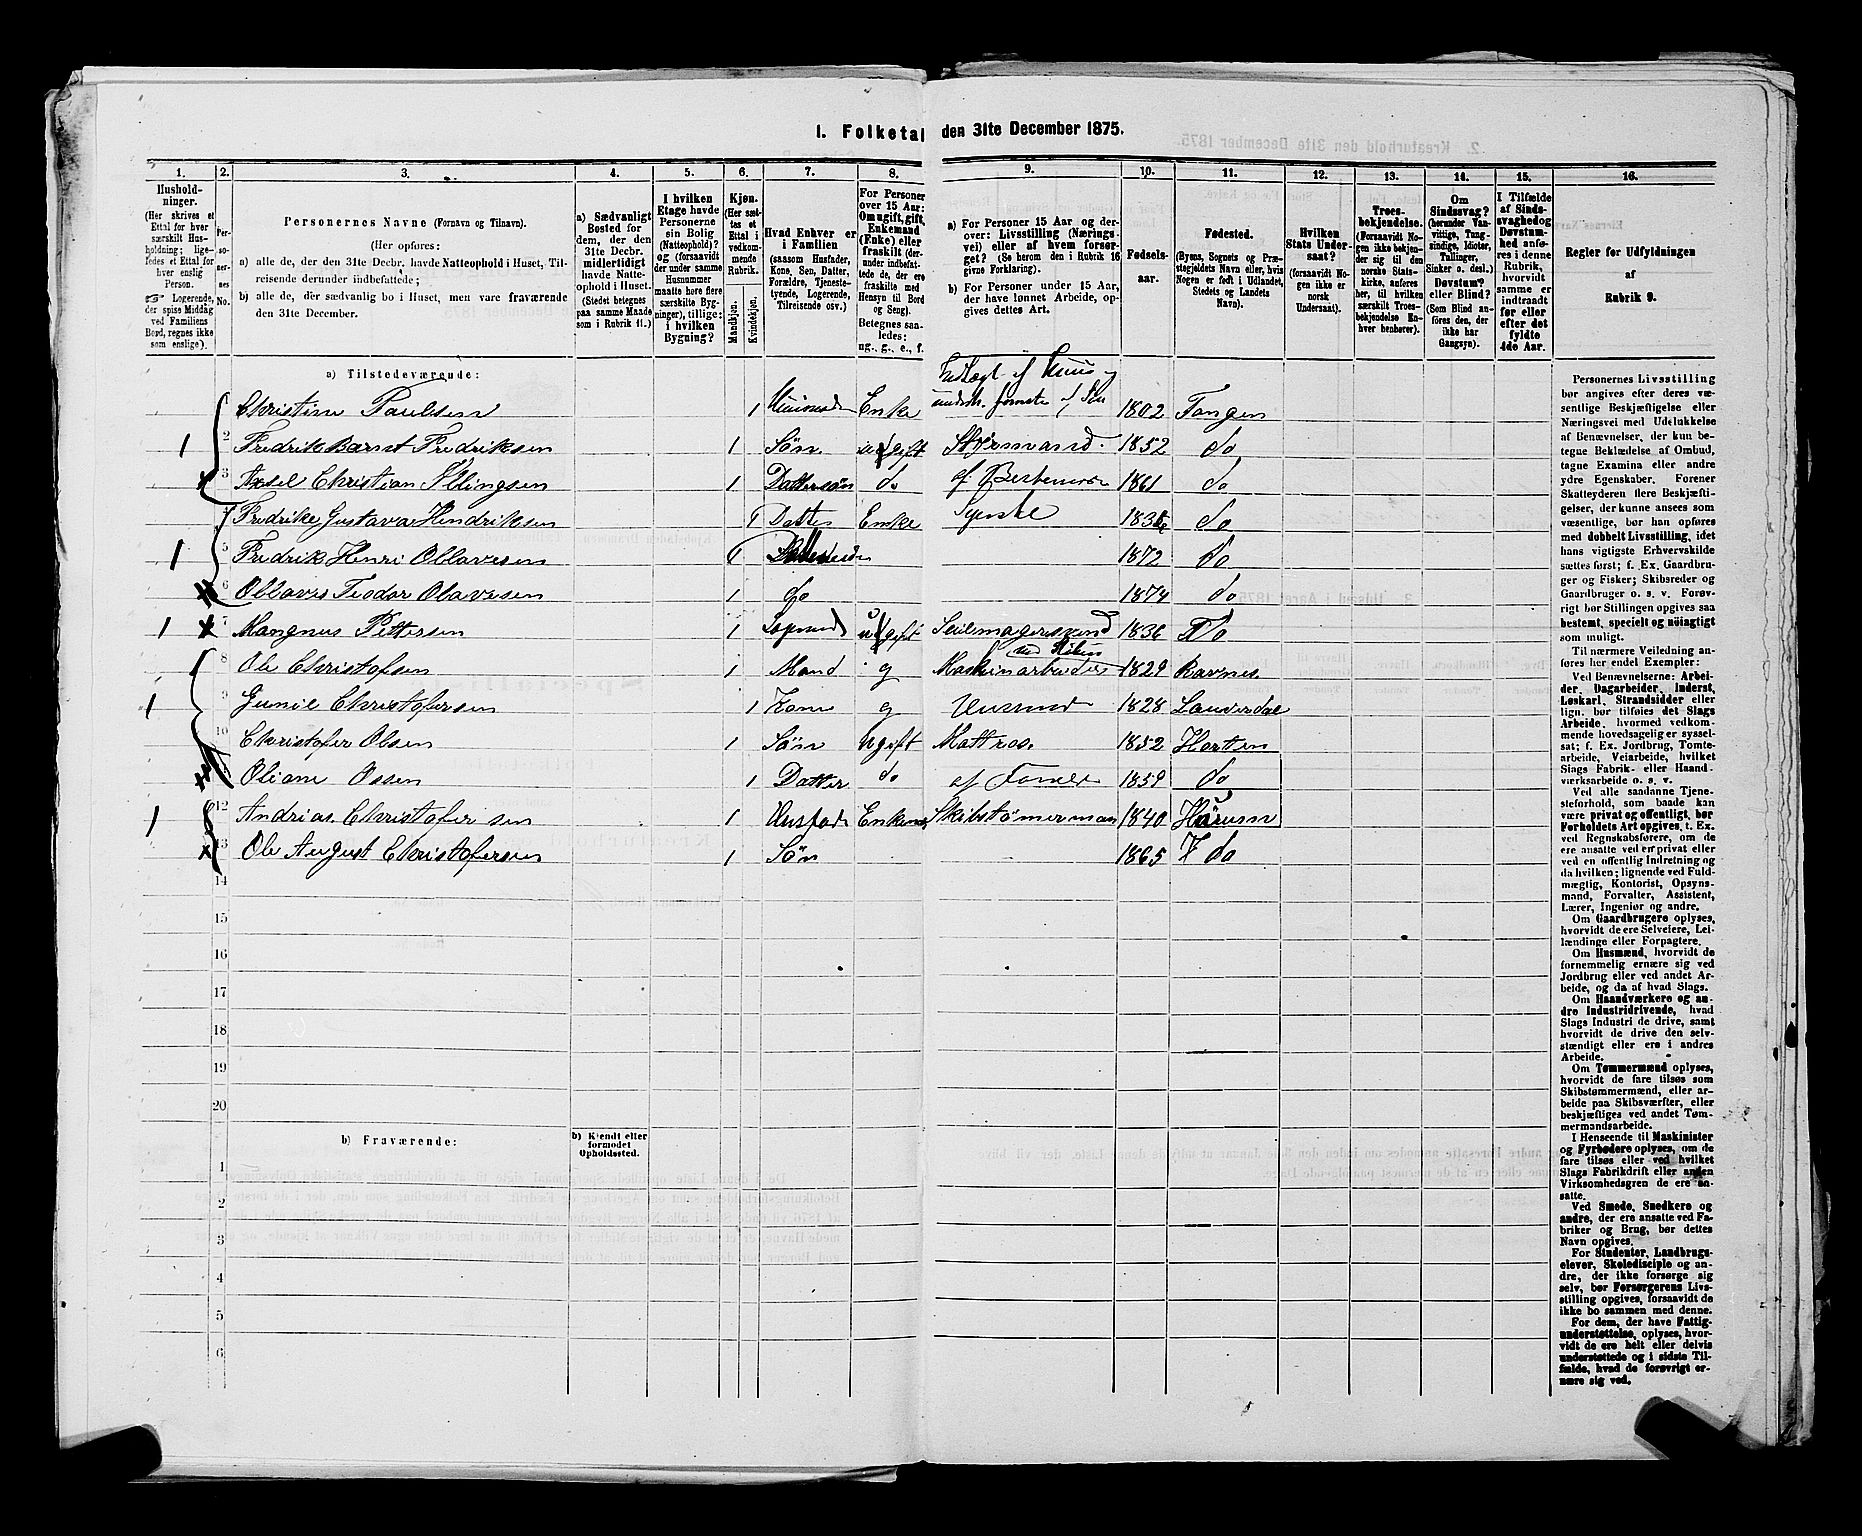 1. Folketal den 31te December 1875.
1. 2. 3. 4. 5. 6. 7. 8. 9. 10. 11. 12. 13. 14. 15. 16.
Hushold-
ninger.
(Her skrives et
Ettal for hver
særskilt Hus-
holdning; lige-
ledes et Ettal for
hver enslig
Person.
☞ Logerende,
der spise Middag
ved Familiens
Bord, regnes ikke
som enslige).
Per-
so-
ner-
nes
No.
Personernes Navne (Fornavn og Tilnavn).
(Her opføres:
a) alle de, der den 31te Decbr. havde Natteophold i Huset, Til-
reisende derunder indbefattede;
b) alle de, der sædvanlig bo i Huset, men vare fraværende
den 31te December.
a) Sædvanligt
Bosted for
dem, der den
31te Decbr.
midlertidigt
havde Natte-
ophold i Huset.
(Stedet betegnes
paa samme Maade
som i Rubrik 11.)
I hvilken
Etage havde
Personerne
sin Bolig
(Natteophold)?
og (forsaavidt
der under samme
Husnummer
maatte høre flere
særskilte Byg-
ninger), tillige:
i hvilken
Bygning?
Kjøn.
(Her sæt-
tes et
Ettal i
vedkom-
mende
Rubrik.
Mandkjøn.
Kvindekjøn.
Hvad Enhver er
i Familien
(saasom Husfader,
Kone, Søn, Datter,
Forældre, Tjeneste-
tyende, Logerende,
Tilreisende osv.)
For Personer
over 15 Aar:
Om ugift, gift,
Enkemand
(Enke) eller
fraskilt (der-
under indbefat-
tede de, der ere
fraskilte med
Hensyn til Bord
og Seng).
Betegnes saa-
ledes:
ug., g., e., f.
a) For Personer 15 Aar og der-
over: Livsstilling (Nærings-
vei) eller af hvem forsør-
get? (Se herom den i Rubrik 16
givne Forklaring).
b) For Personer under 15 Aar,
der have lønnet Arbeide, op-
gives dettes Art.
Fødsels-
aar.
Fødested.
(Byens, Sognets og Præ-
stegjeldets Navn eller, hvis
Nogen er født i Udlandet,
Stedets og Landets
Navn).
Hvilken
Stats Under-
saat?
(forsaavidt No-
gen ikke er
norsk
Undersaat).
Troes-
bekjendelse.
(Forsaavidt No-
gen ikke bekjen-
der sig til den
norske Stats-
kirke, anføres
her, til hvilken
særskilt Troes-
bekjendelse En-
hver henhører).
Om
Sindssvag?
(herunder Van-
vittige, Tung-
sindige, Idioter,
Tullinger,
Sinker o. desl.)
Døvstum?
eller Blind?
(Som Blind an-
føres den, der
ikke har
Gangsyn).
I Tilfælde
af Sinds-
svaghed og
Døvstum-
hed anfø-
res i denne
Rubrik,
hvorvidt
samme er
indtraadt
før eller
efter det
fyldte
4de Aar.
Regler for Udfyldningen
af
Rubrik 9.
a) Tilstedeværende:
Christine Paulsen 1 Enke 1802 Tangen
1 2 Fredrik Barnt Fredriksen 1 Søn ugift Styrmand 1852 do
3 Axsel Christian Ellingsen 1 Dattersøn do 1861 do
Fredrike Gustava Hendriksen 1 Datter Enke Syerske do
1 5 Fredrik Henri Ollavesen 1 1872 do
6 Ollaves Teodor Olavesen 1 do 1874 do
1 7 Mangnus Pettersen 1 Logerende ugift Seilmagersvend 1836 Do
8 Ole Christofsen 1 Mand g Maskinarbeider 1829 Ravnes
1 9 Gunil Christofersen 1 Kone g 1828 Lauverdal
10 Christofer Olsen 1 Søn ugift Mattros 1852 Horten
Oliane Ossen 1 Datter do af Forældre 1859 do
1 12 Andrias Christofersen 1 Husfader Enkemand Skibstømerman 1840
13 Ole August Christofersen 1 Søn 1865 do
14
15
16
17
18
19
20
b) Fraværende:
b) Kjendt eller
formodet
Opholdssted.
1
2
3
4
5
6
Personernes Livsstilling
bør angives efter deres væ-
sentlige Beskjæftigelse eller
Næringsvei med Udelukkelse
af Benævnelser, der kun be-
tegne Beklædelse af Ombud,
tagne Examina eller andre
ydre Egenskaber. Forener
Skatteyderen flere Beskjæfti-
gelser, der kunne ansees som
væsentlige, bør han opføres
med dobbelt Livsstilling, idet
hans vigtigste Erhvervskilde
sættes først; f. Ex. Gaardbru-
ger og Fisker; Skibsreder og
Gaardbruger o. s. v. Forøv-
rigt bør Stillingen opgives saa
bestemt, specielt og nøiagtigt
som muligt.
Til nærmere Veiledning an-
føres her endel Exempler:
Ved Benævnelserne: Arbei-
der, Dagarbeider, Inderst,
Løskarl, Strandsidder eller
lign. bør tilføies det Slags
Arbeide, hvormed vedkom-
mende hovedsagelig er syssel-
sat; f. Ex. Jordbrug, Tomte-
arbeide, Veiarbeide, hvilket
Slags Fabrik- eller Haand-
værksarbeide o. s. v.
Ved alle saadanne Tjene-
steforhold, som baade kan
være privat og offentligt, bør
Forholdets Art opgives, t. Ex.
ved Regnskabsførere, om de
ere ansatte ved en privat eller
ved en offentlig Indretning og
da hvilken; lignende ved Fuld-
mægtig, Kontorist, Opsyns-
mand, Forvalter, Assistent,
Lærer, Ingeniør og andre.
Om Gaardbrugere oplyses,
hvorvidt de ere Selveiere, Lei-
lændinge eller Forpagtere.
Om Husmænd, hvorvidt de
fornemmelig ernære sig ved
Jordbrug eller ved andet Ar-
beide, og da af hvad Slags.
Om Haandværkere og an-
dre Industridrivende, hvad
Slags Industri de drive, samt
hvorvidt de drive den selv-
stændigt eller ere i andres
Arbeide.
Om Tømmermænd oplyses,
hvorvidt de fare tilsøs som
Skibstømmermænd, eller ar-
beide paa Skibsværfter, eller
beskjæftiges ved andet Tøm-
mermandsarbeide.
I Henseende til Maskinister
og Fyrbødere oplyses, om de
fare tilsøs eller ved hvilket
Slags Fabrikdrift eller anden
Virksomhedsgren de ere an-
satte.
Ved Smede, Snedkere og
andre, der ere ansatte ved Fa-
briker og Brug, bør dettes
Navn opgives.
For Studenter, Landbrugs-
elever, Skoledisciple og an-
dre, der ikke forsørge sig
selv, bør Forsørgerens Livs-
stilling opgives, forsaavidt de
ikke bo sammen med denne.
For dem, der have Fattig-
understøttelse, oplyses, hvor-
vidt de ere helt eller delvis
understøttede og i sidste Til-
fælde, hvad de forøvrigt er-
nære sig ved.